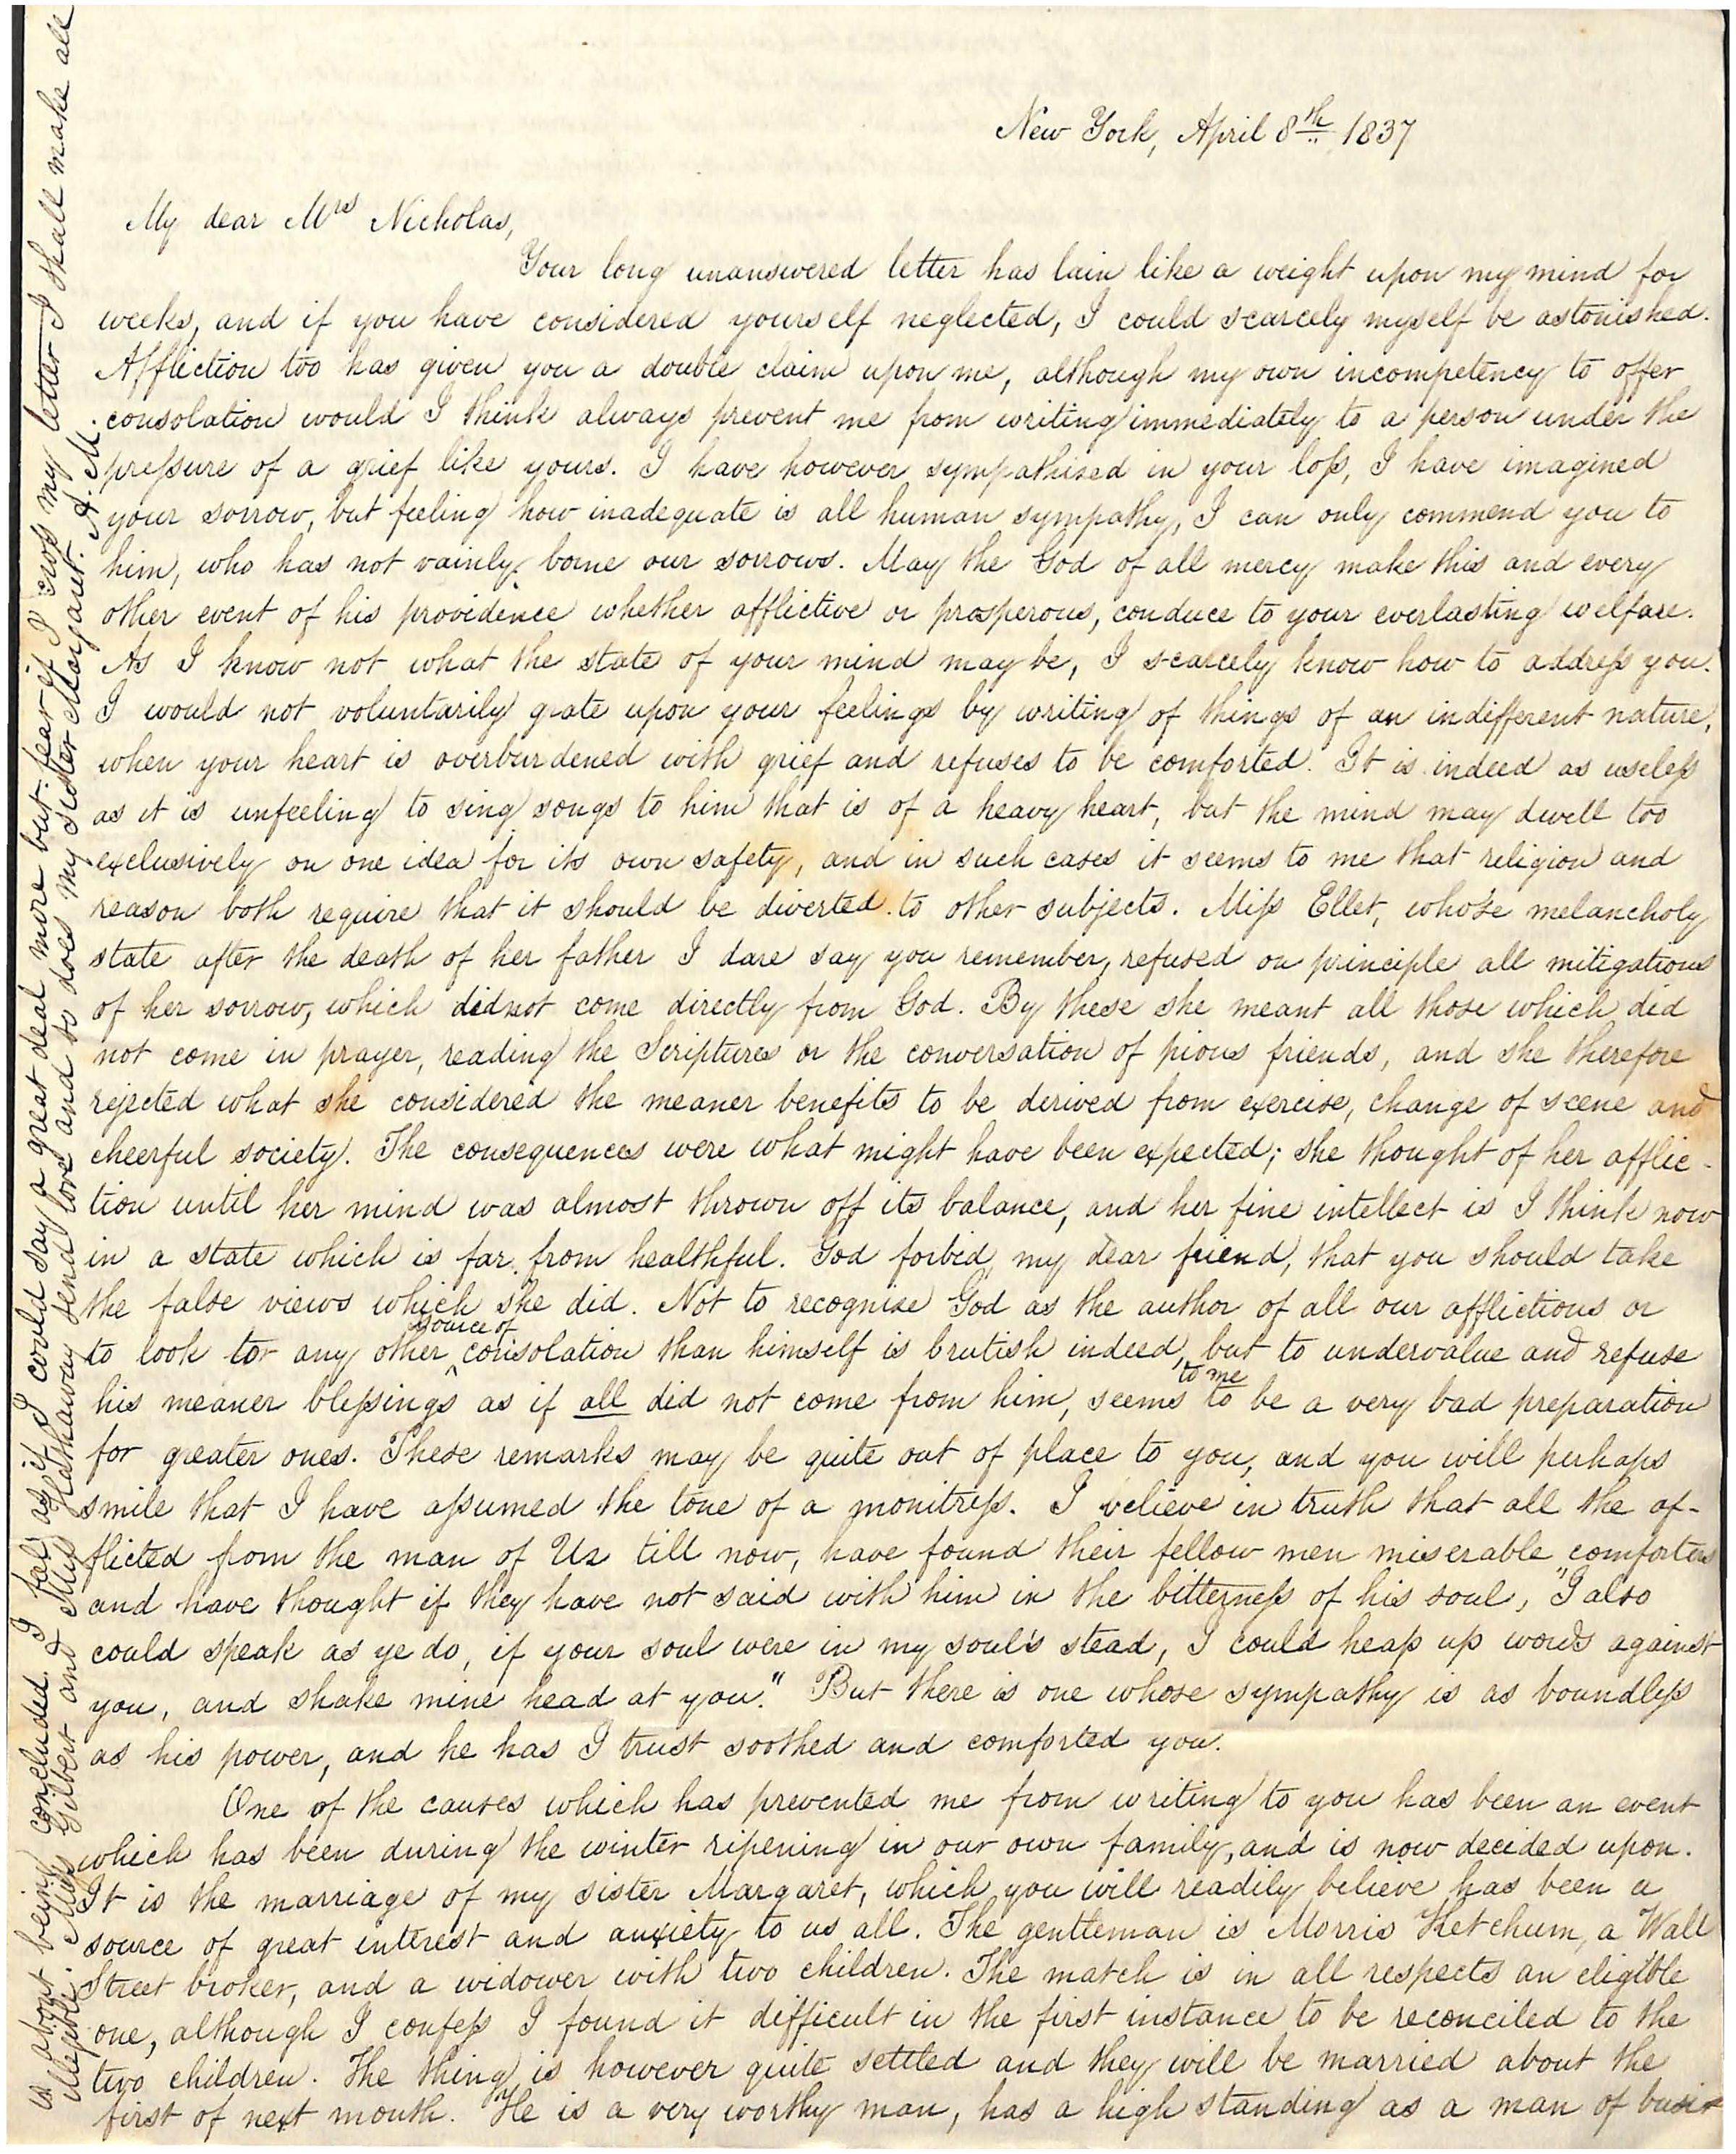 New York, April 8th 1837
My dear Mrs Nicholas,
Your long unanswered letter has lain like a weight upon my mind for
weeks, and if you have considered yourself neglected, I could scarcely myself be astonished.
Affliction too has given you a double claim upon me, although my own incompetency to offer
consolation would I think always prevent me from writing immediately to a person under the
pressure of a grief like yours. I have however sympathised in your loss, I have imagined
your sorrow, but feeling how inadequate is all human sympathy, I can only commend you to
him, who has not vainly borne our sorrows. May the God of all mercy make this and every
other event of his providence whether afflictive or prosperous, conduce to your everlasting welfare.
As I know not what the state of your mind may be, I scarcely know how to address you.
I would not voluntarily grate upon your feelings by writing of things of an indifferent nature,
when your heart is overburdened with grief and refuses to be comforted. It is indeed as useless
as it is unfeeling to sing songs to him that is of a heavy heart, but the mind may dwell too
exclusively on one idea for its own safety, and in such cases it seems to me that religion and
reason both require that it should be diverted to other subjects. Miss Ellet, whose melancholy
state after the death of her father I dare say you remember, refused on principle all mitigations
of her sorrow, which did not come directly from God. By these she meant all those which did
not come in prayer, reading the Scriptures or the conversation of pious friends, and she therefore
rejected what she considered the meaner benefits to be derived from exercise, change of scene and
cheerful society. The consequences were what might have been expected; she thought of her afflic-
tion until her mind was almost thrown off its balance, and her fine intellect is I think now
in a state which is far from healthful. God forbid, my dear friend, that you should take
the false views which she did. Not to recognise God as the author of all our afflictions or
to look for any other source of consolation than himself is brutish indeed, but to undervalue and refuse
his meaner blessings as if all did not come from him, seems to me to be a very bad preparation
for greater ones. These remarks may be quite out of place to you, and you will perhaps
smile that I have assumed the tone of a monitress. I believe in truth that all the af-
flicted from the man of Uz till now, have found their fellow men miserable comforters
and have thought if they have not said with him in the bitterness of his soul, "I also
could speak as ye do, if your soul were in my soul's stead, I could heap up words against
you, and shake mine head at you." But there is one whose sympathy is as boundless
as his power, and he has I trust soothed and comforted you.
One of the causes which has prevented me from writing to you has been an event
which has been during the winter ripening in our own family, and is now decided upon.
It is the marriage of my sister Margaret, which you will readily believe has been a
source of great interest and anxiety to us all. The gentleman is Morris Ketchum, a Wall
Street broker, and a widower with two children. The match is in all respects an eligible
one, although I confess I found it difficult in the first instance to be reconciled to the
two children. The thing is however quite settled and they will be married about the
first of next month. He is a very worthy man, has a high standing as a man of busi-
is about being concluded. I feel as if I could say a great deal more but fear if I cross my letter I shall make all
illegible. Miss Gilbert and Miss Hathaway send love and so does my sister Margaret. A. M.